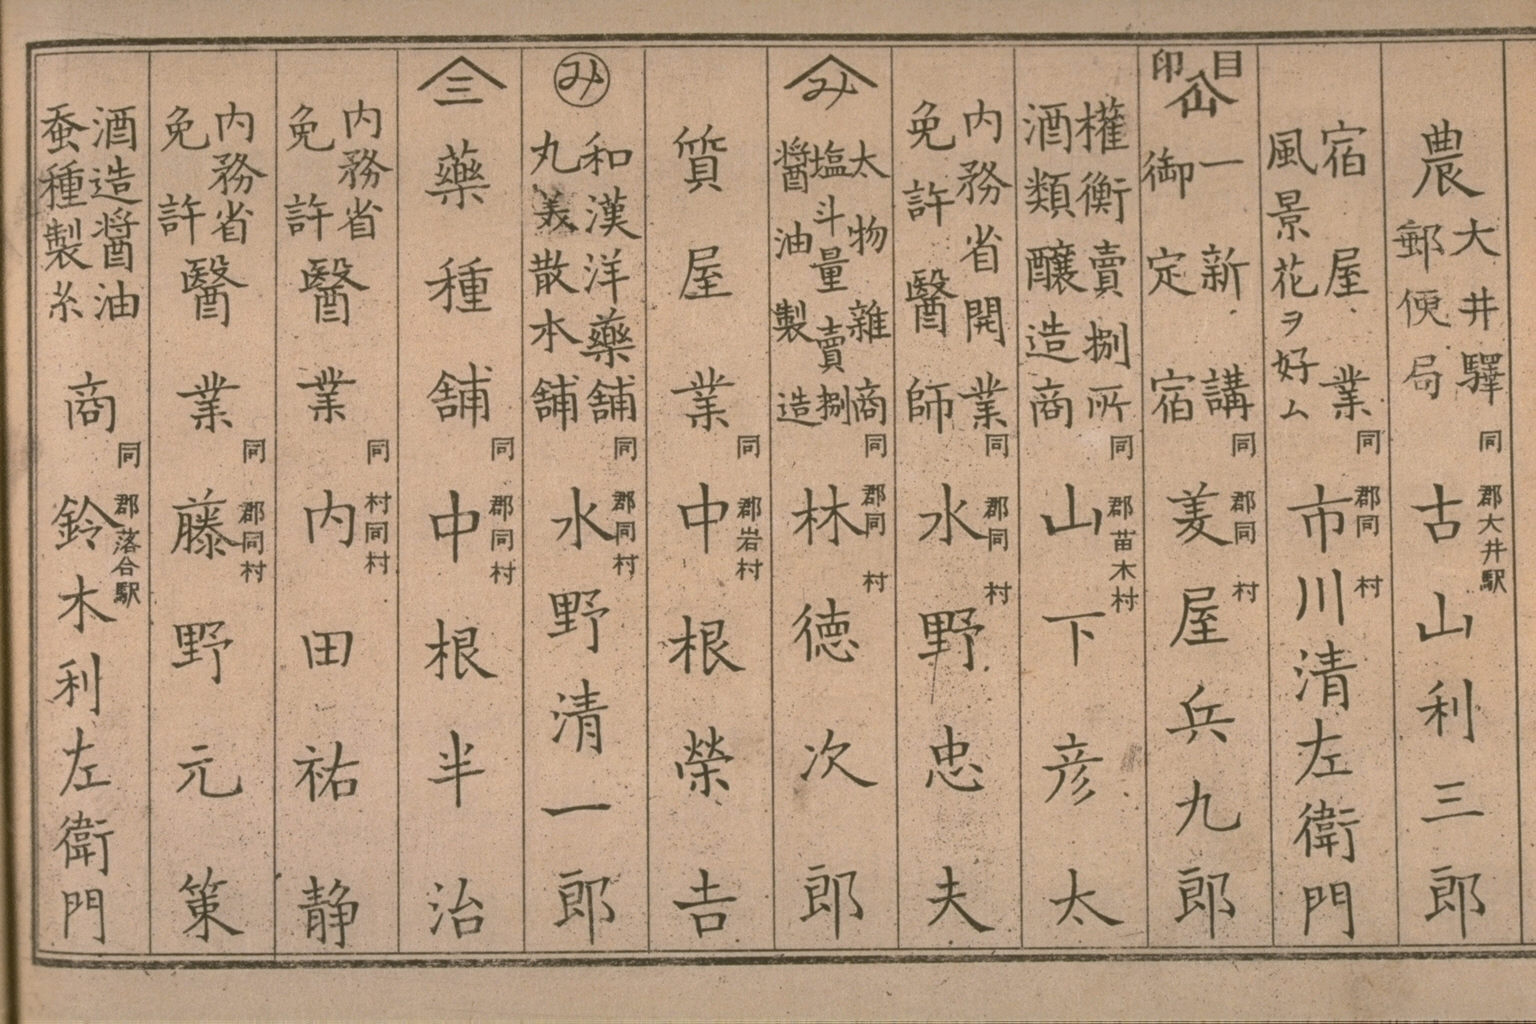 農 大井驛 郵便局 同郡大井駅 古山利三郎
宿屋業 風景花ヲ好ム 同郡同村 市川清左衛門
目印 一新講 御定宿 同郡同村 美屋兵九郎
權衡賣捌所 酒類釀造商 同郡苗木村 山下彦太
内務省開業 免許醫師 同郡同村 水野忠夫
み 太物雜商 塩斗量賣捌 醬油製造 同郡同村 林徳次郎
質屋業 同郡岩村 中根榮吉
み 和漢洋藥舖 丸義散本舖 同郡同村 水野清一郎
三 藥種舖 同郡同村 中根半治
内務省免許 醫業 同村同村 内田祐静
内務省免許 醫業 同郡同村 藤野元策
酒造醬油 蚕種製糸 商 同郡落合駅 鈴木利左衛門